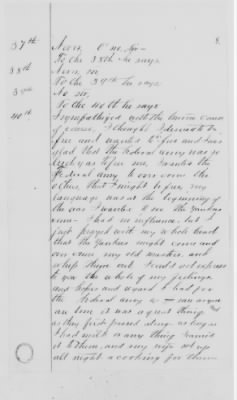 8.
37th Never, O no, sir
To the 38th he says
38th Never, sir
To the 39th he says
39th No, sir,
To the 40th he says
40th I sympathized with the Union cause
of course, I thought I
free and wanted to free and I was
glad that the Federal army was so
lucky as to free me, I wanted the
Federal army to over come the
other, that I might be free, my
language was at the beginning of
the war I wanted to see the Yankees
come. I had no influence, but I
just prayed with my whole heart
that the Yankees might come and
over run my old master, and
whip them out. I could not express
to you the whole of my feelings
and hopes and regard I had for
the Federal army
as they first passed along. as long as
I had milk or any thing I carried
it to them, and my wife set up
all night a cooking for them